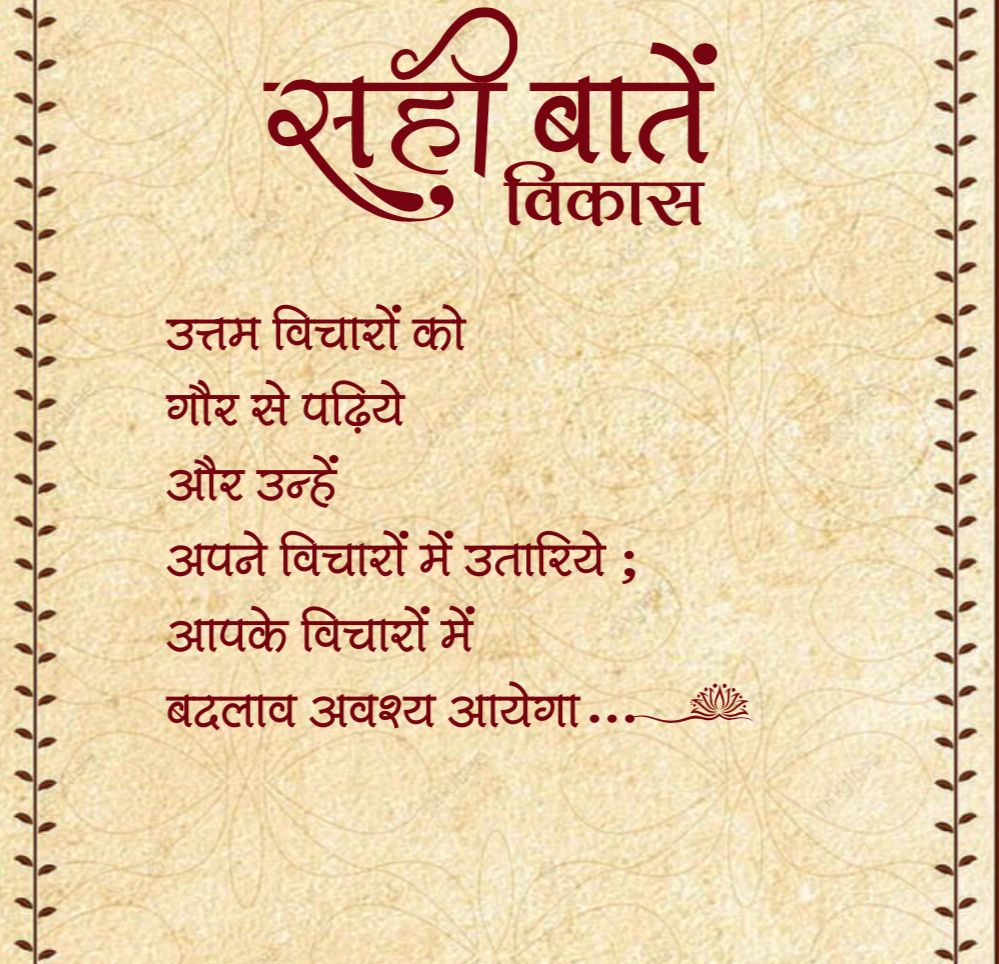 सही बातें
विकास
उत्तम विचारों को
गौर से पढ़िये
और उन्हें
अपने विचारों में उतारिये ;
आपके विचारों में
बदलाव अवश्य आयेगा...